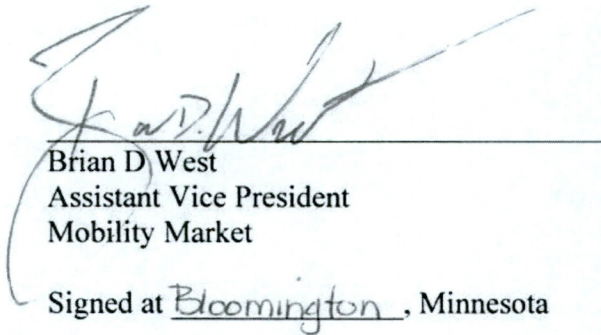 Brian D. West
Brian D West
Assistant Vice President
Mobility Market
Signed at Bloomington, Minnesota